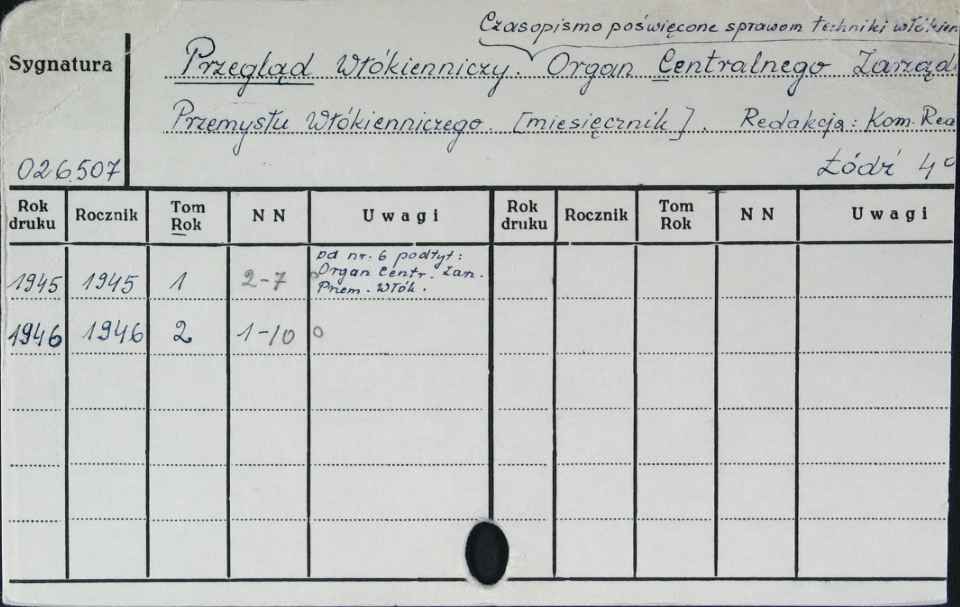 Czasopismo poświęcone sprawom techniki włókien
Sygnatura
Przegląd Włókienniczy. Organ Centralnego Zarząd
Przemysłu Włókienniczego. [miesięcznik]. Redakcja: Kom. Red
026.507
Łódź 4º
Rok druku Rocznik Tom Rok NN Uwagi Rok druku Rocznik Tom Rok NN Uwagi
od nr. 6 podtyt:
1945 1945 1 2-7 Organ Centr. Zarz.
Przem. Włók.
1946 1946 2 1-10